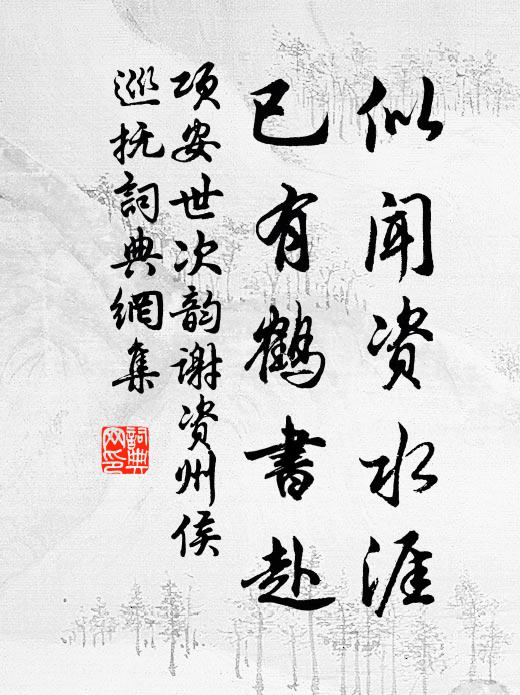 似闻资水涯
已有鹤书赴
项安世次韵谢资州侯
巡抚词典網集
詞典
网印